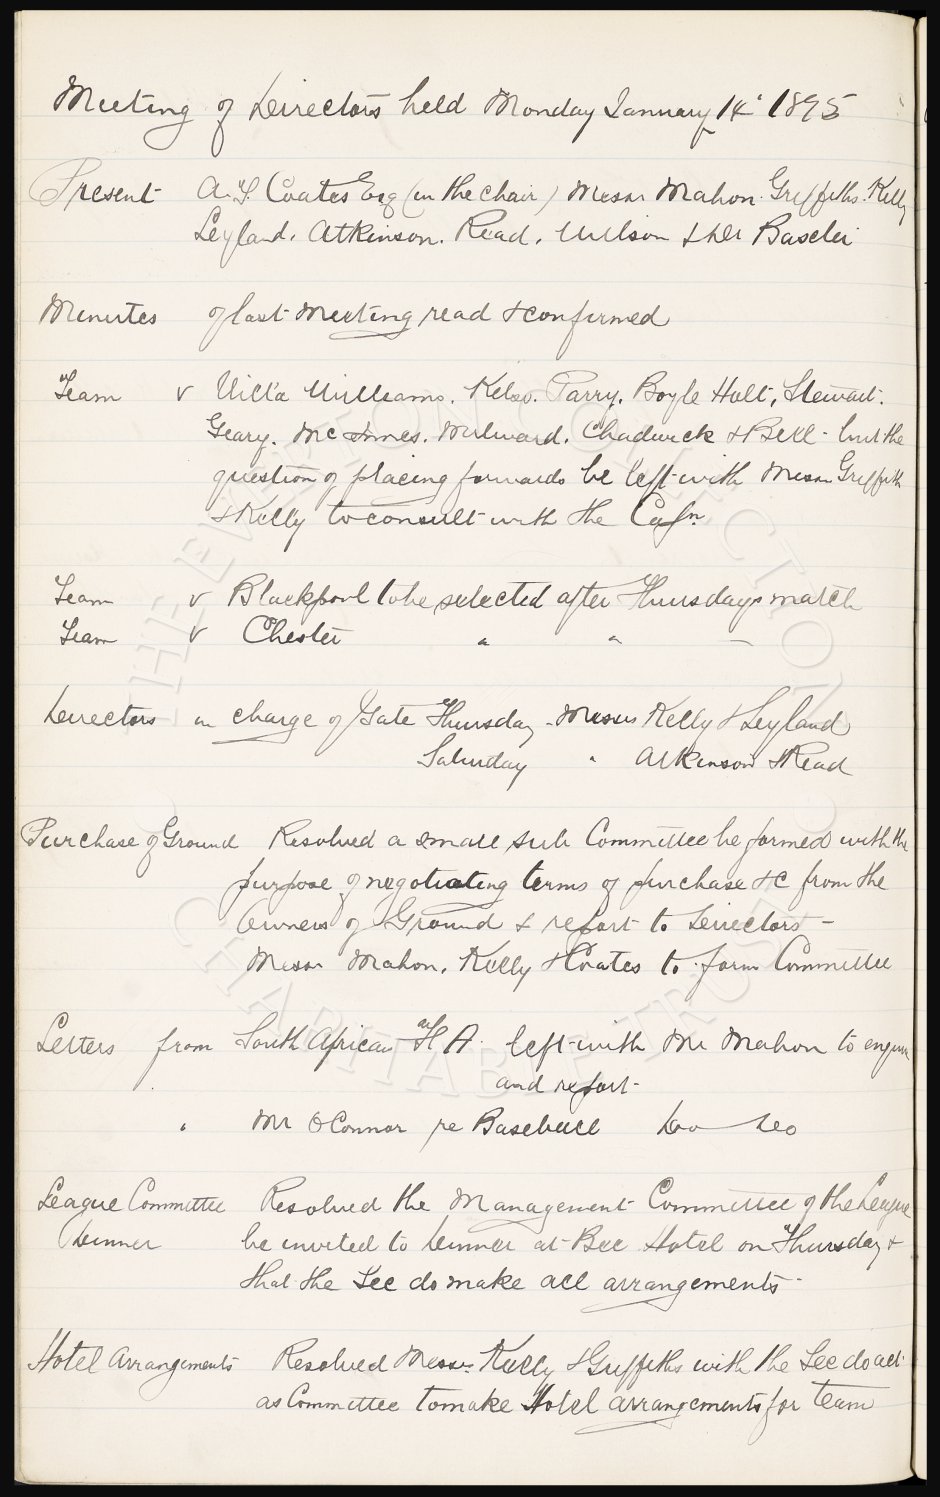 Meeting of Directors held Monday January 14th 1895
Present A.T. Coates Esq (in the chair) Messrs Mahon. Griffiths. Kelly
Leyland. Atkinson. Read. Wilson & Dr Baxter
Minutes of last meeting read & confirmed
Team v Villa Williams. Kelso. Parry. Boyle Holt, Stewart.
Geary. McInnes. Milward. Chadwick & Bell - but the
question of placing forwards be left with Messrs Griffith
& Kelly to consult with the Captn
Team v Blackpool to be selected after Thursdays match
Team v Chester " " —
Directors in charge of Gate Thursday - Messrs Kelly & Leyland
Saturday " Atkinson & Read
Purchase of Ground Resolved a small sub Committee be formed with the
purpose of negotiating terms of purchase &c from the
Owners of Ground & report to Directors -
Messrs Mahon, Kelly & Coates to form Committee
Letters from South African F A. left with Mr Mahon to enquire
and report -
" Mr O'Connor re Baseball Do Do
League Committee Resolved the Management Committee of the League
Dinner be invited to dinner at Bee Hotel on Thursday &
that the Sec do make all arrangements -
Hotel Arrangements Resolved Messrs Kelly & Griffiths with the Sec do act
as Committee to make Hotel arrangements for team
THE EVERTON COLLECTION
CHARITABLE TRUST